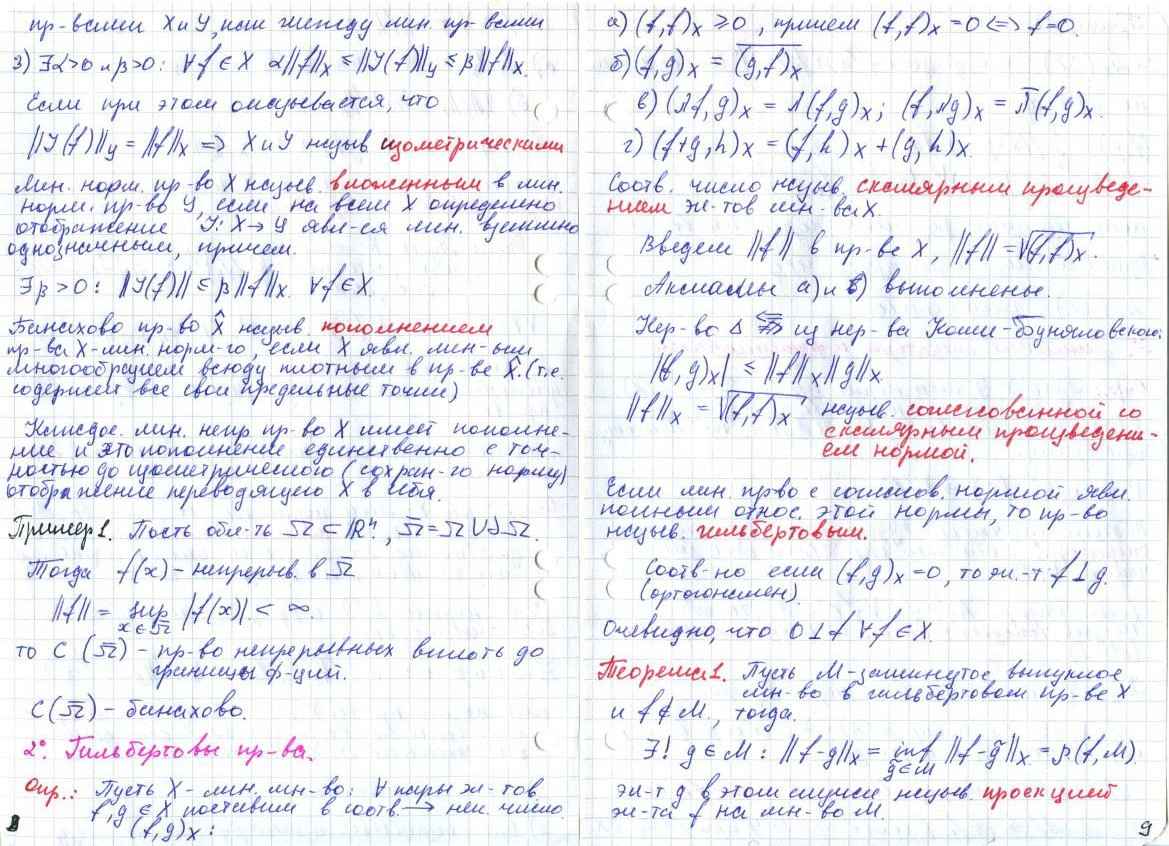 пр-вами X и Y, как между лин. пр-вами
3) ∃α>0 и β>0: ∀f∈X α||f||_X ≤ ||J(f)||_Y ≤ β||f||_X.
Если при этом оказывается, что
||J(f)||_Y = ||f||_X => X и Y назыв. изометрическими
Лин. норм. пр-во X назыв. вложенным в лин.
норм. пр-во Y, если на всем X определено
отображение J: X→Y явл-ся лин. взаимно
однозначным, причем.
∃β>0: ||J(f)|| ≤ β||f||_X. ∀f∈X
Банахово пр-во X̂ назыв. пополнением
пр-ва X-лин. норм-го, если X явл. лин-ым
многообразием всюду плотным в пр-ве X̂. (т.е.
содержит все свои предельные точки)
Каждое лин. непр пр-во X имеет пополне-
ние и это пополнение единственно с точ-
ностью до изометрического (сохран-го норму)
отображение переводящего X в себя.
Пример 1. Пусть обл-ть Ω ⊂ ℝⁿ, Ω̅ = Ω∪∂Ω.
Тогда f(x) – непрерыв. в Ω̅
||f|| = sup_{x∈Ω̅} |f(x)| < ∞.
то C(Ω̅) – пр-во непрерывных вплоть до
границы ф-ций.
C(Ω̅) – банахово.
2° Гильбертовы пр-ва.
Опр.: Пусть X – лин. мн-во: ∀ пары эл-тов
f, g ∈ X поставим в соотв. → нек. число
(f,g)_X:
8
а) (f,f)_X ≥ 0, причем (f,f)_X = 0 <=> f=0.
б) (f,g)_X = \overline{(g,f)_X}
в) (λf,g)_X = λ(f,g)_X; (f,λg)_X = λ̅(f,g)_X.
г) (f+g,h)_X = (f,h)_X + (g,h)_X.
Соотв. число назыв. скалярным произведе-
нием эл-тов мн-ва X.
Введем ||f|| в пр-ве X, ||f|| = √(f,f)_X.
Аксиомы а) и б) выполнены.
Нер-во Δ <= из нер-ва Коши-Буняковского:
|(f,g)_X| ≤ ||f||_X ||g||_X
||f||_X = √(f,f)_X назыв. согласованной со
скалярным произведени-
ем нормой.
Если лин. пр-во с согласов. нормой явл.
полным относ. этой нормы, то пр-во
назыв. гильбертовым.
Соотв-но если (f,g)_X = 0, то эл-т f⊥g.
(ортогонален).
Очевидно, что 0⊥f ∀f∈X.
Теорема 1. Пусть M-замкнутое, выпуклое
мн-во в гильбертовом пр-ве X
и f∉M, тогда.
∃! g∈M: ||f-g||_X = inf_{g̃∈M} ||f-g̃||_X = ρ(f,M).
эл-т g в этом случае назыв. проекцией
эл-та f на мн-во M.
9